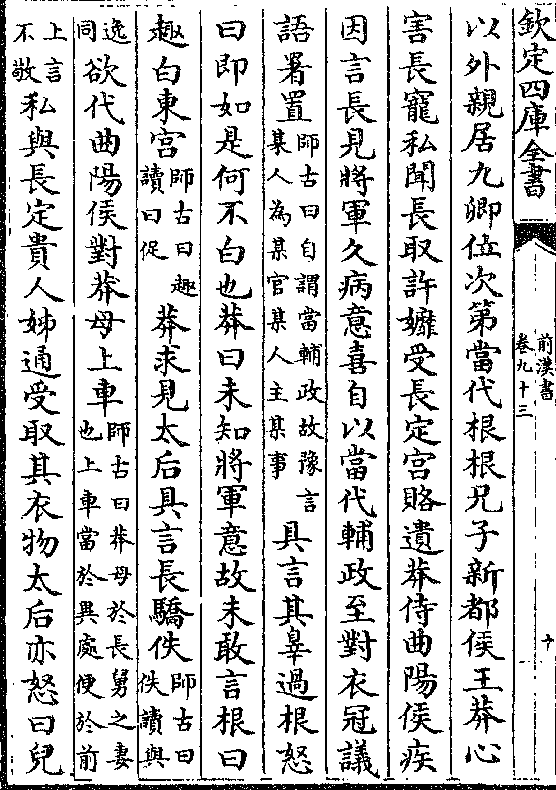 欽定四庫全書
前漢書
卷九十三
十
以外親居九卿位次第當代根根兄子新都侯王莽心
害長寵私聞長取許嬤受長定宫賂遺莽侍曲陽侯疾
因言長見將軍久病意喜自以當代輔政至對衣冠議
語署置師古曰自謂當輔政故豫言某人為某官某人主某事具言其辠過根怒
曰即如是何不白也莽曰未知將軍意故未敢言根曰
趣白東宫師古曰趣讀曰促莽求見太后具言長驕佚師古曰佚讀與
逸同欲代曲陽侯對莽母上車師古曰莽母於長舅之妻也上車當於異處便於前
上言不敬私與長定貴人姊通受取其衣物太后亦怒曰兒